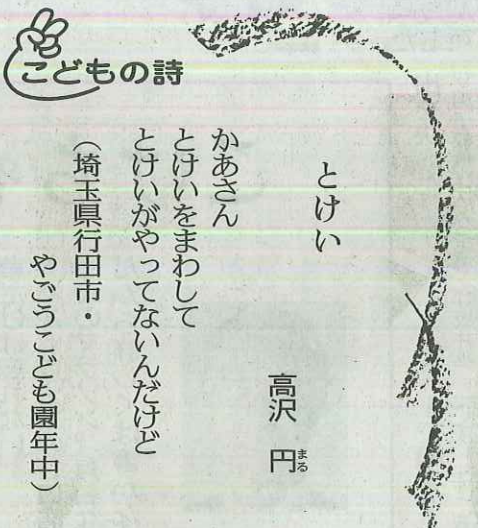 こどもの詩
とけい
高沢 円
まる
かあさん
とけいをまわして
とけいがやってないんだけど
（埼玉県行田市・
やごうこども園年中）